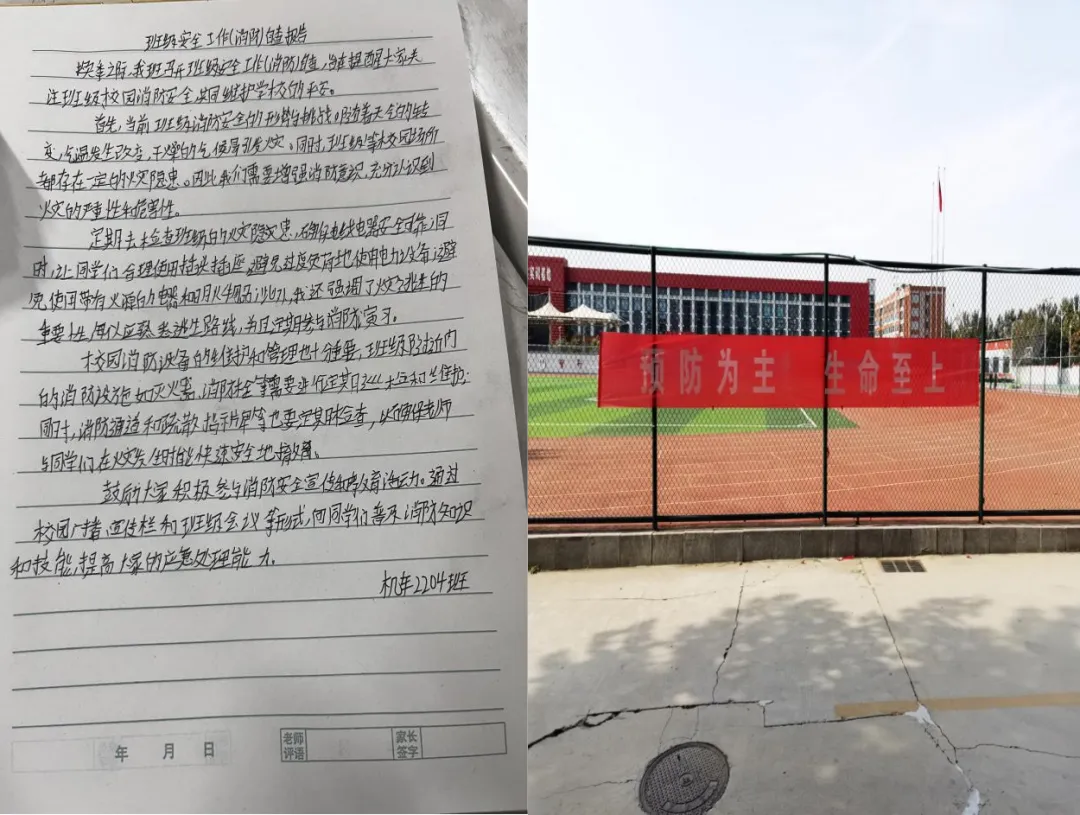 班级安全工作(消防)自查报告
换季之际,我班召开班级安全工作(消防)自查,旨在提醒大家关
注班级校园消防安全,共同维护学校的平安。
首先,当前班级消防安全的形势的挑战。随着天气的转
变,气温发生改变,干燥的气候易引发火灾。同时,班级等校园场所
都存在一定的火灾隐患。因此我们需要增强消防意识,充分认识到
火灾的严重性和危害性。
定期去检查班级的火灾隐患,确保电线电器安全可靠;同
时,让同学们合理使用插头插座,避免过度负荷地使用电力设备;避
免使用带有火源的电器和明火物品;此外,我还强调了火灾逃生的
重要性,可以应熟悉逃生路线,并且定期参与消防演习。
校园消防设备的维护和管理也十分重要,班级附近内
的消防设施如灭火器、消防栓等需要进行定期检查和维护;
同时,消防通道和疏散指示牌等也要定期检查,以确保老师
与同学们在火灾发生时能快速安全地撤离。
鼓励大家积极参与消防安全宣传和教育活动。通过
校园广播、宣传栏和班级会议等形式,向同学们普及消防知识
和技能,提高大家的应急处理能力。
机车2204班
年 月 日
老师评语
家长签字
预防为主 生命至上